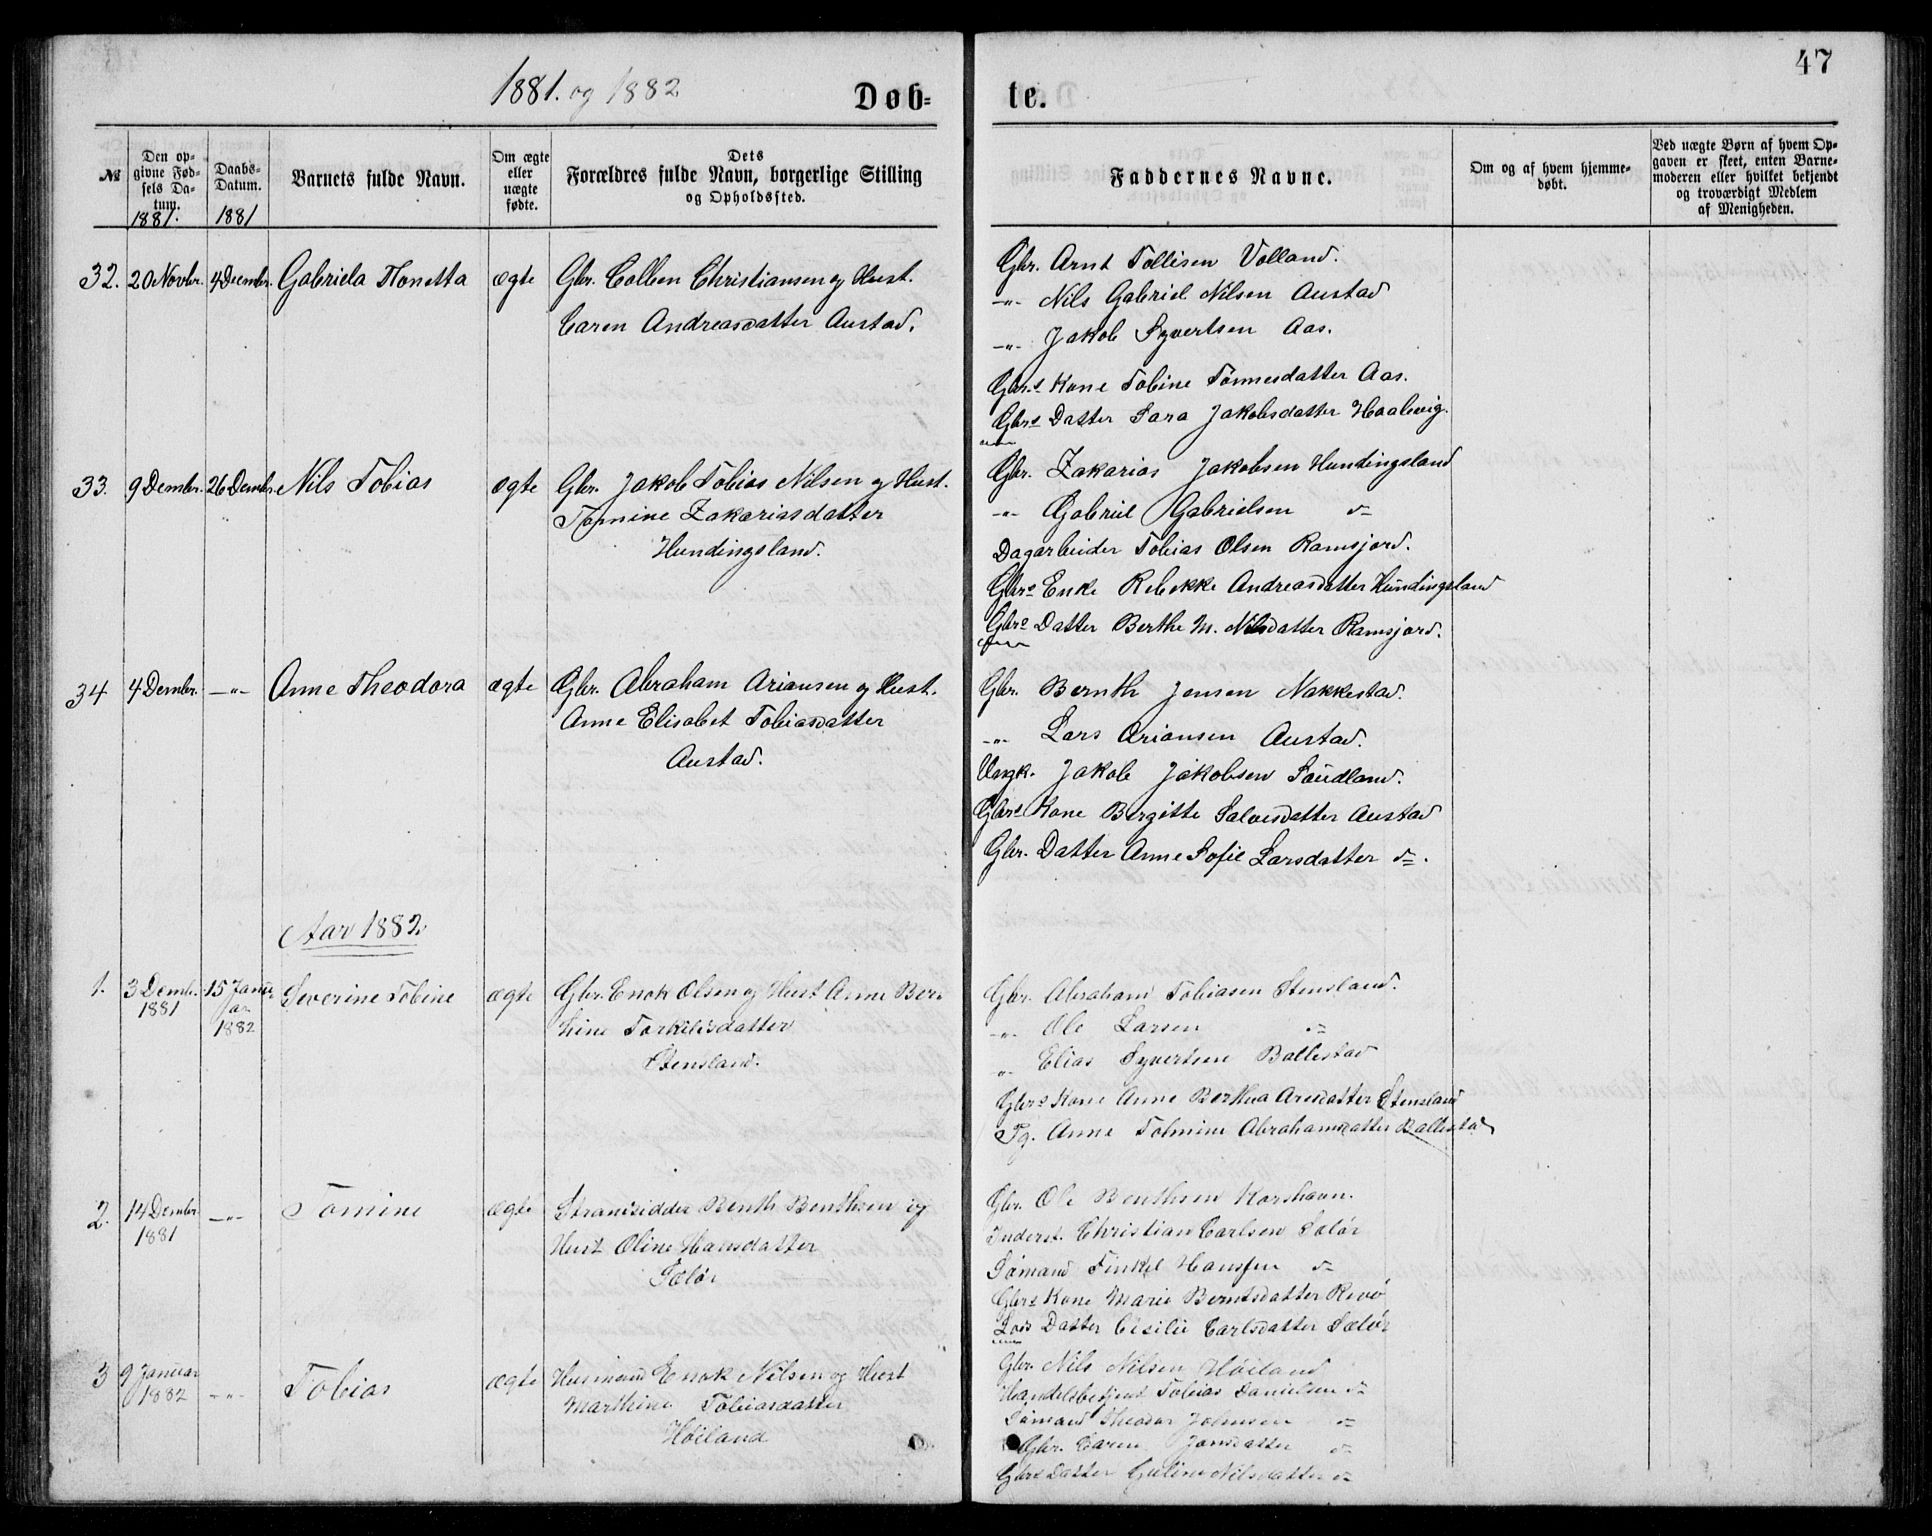 1881. og 1882.
Døb=
te.
47
№
Den op=
givne Fød=
sels Da=
tum.
1881.
Daabs=
Datum.
1881
Barnets fulde Navn.
Om ægte
eller
uægte
fødte.
Dets
Forældres fulde Navn, borgerlige Stilling
og Opholdssted.
Faddernes Navne.
Om og af hvem hjemme=
døbt.
Ved uægte Børn af hvem Op=
gaven er skeet, enten Barne=
moderen eller hvilket bekjendt
og troværdigt Medlem
af Menigheden.
32. 20 Novbr. 4 Decmbr. Gabriela Tonetta ægte Gbr. Colben Christiansen og Hust.
Caren Andreasdatter Austad.
Gbr. Arnt Tollisen Volland.
-"- Nils Gabriel Nilsen Austad
-"- Jakob Syvertsen Aas.
Gbr.s Kone Tobine Tønnesdatter Aas.
Gbrs Datter Sara Jakobsdatter Haalevig.
33. 9 Dembr. 26 Dembr. Nils Tobias ægte Gbr. Jakob Tobias Nilsen og Hust.
Tomine Zakariasdatter
Hundingsland.
Gbr. Zakarias Jakobsen Hundingsland
-"- Gabriel Gabrielsen d=
Dagarbeider Tobias Olsen Ramsjord.
Gbrs Enke Rebekke Andreasdatter Hundingsland
Gbrs Datter Berthe M. Nilsdatter Ramsjord.
34 4 Dembr. -"- Anne Theodora ægte Gbr. Abraham Ariansen og Hust.
Anne Elisabet Tobiasdatter
Austad.
Gbr. Bernth Jensen Nakkestad.
-"- Lars Ariansen Austad.
Ungk. Jakob Jakobsen Saudland.
Gbrs Kone Birgitte Salvesdatter Austad
Gbr. Datter Anne Sofie Larsdatter d=.
Aar 1882.
1. 3 Dembr. 15 Janu= Severine Tobine ægte Gbr. Enok Olsen og Hust Anne Ber=
1881 ar
1882
thine Torkildsdatter
Stensland.
Gbr. Abraham Tobiasen Stensland.
-"- Ole Larsen d=
-"- Elias Syvertsen Ballestad
Gbrs Kone Anne Berthea Aresdatter Stensland
Pg. Anne Tolmine Abrahamsdatter Ballestad
2. 14 Dembr. -"- Tomine ægte Strandsidder Benth Benthsen og
1881
Hust Oline Hansdatter
Sælør
Gbr. Ole Benthsen Korshavn.
Inderst. Christian Carlsen Sælør
Sømand Finkel Hansen d=
Gbrs Kone Marie Berntsdatter Revø
Lods Datter Cesilie Carlsdatter Sælør
3 9 Januar -"- Tobias ægte Husmand Enok Nilsen og Hust
1882
Marthine Tobiasdatter
Høiland
Gbr. Nils Nilsen Høiland
Handelsbetjent Tobias Danielsen d=
Sømand Theodor Johnsen d=
Gbr. Caren Jansdatter d=
Gbrs Datter Guline Nilsdatter d=